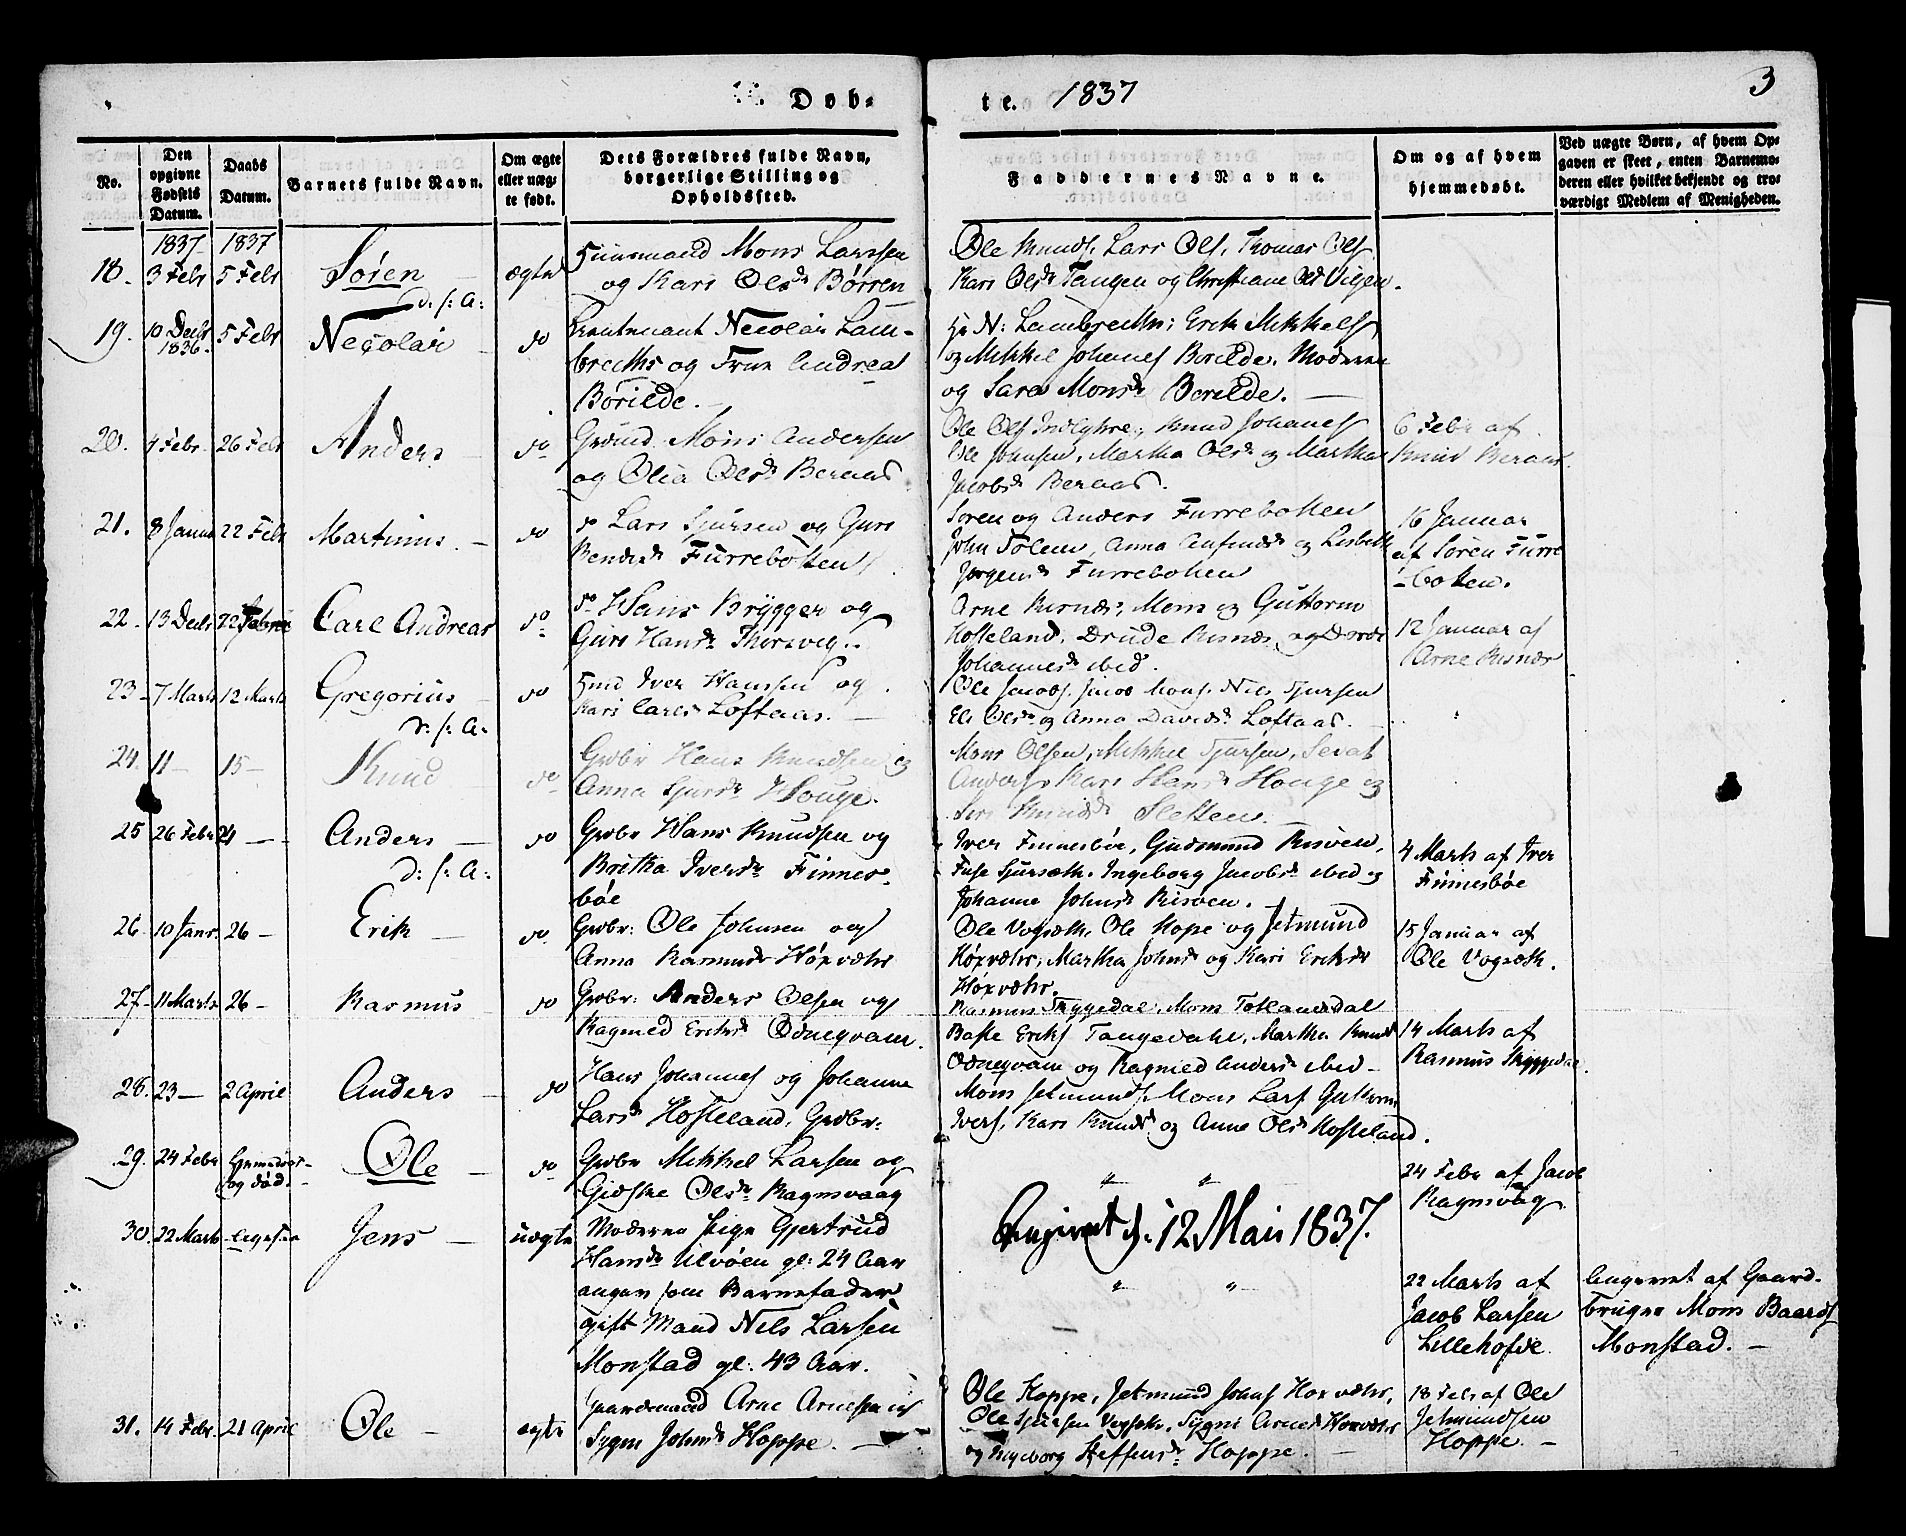 Døb-
te. 1837
3
No.
Den opgivne Fødsels Datum.
Daabs Datum.
Barnets fulde Navn.
Om ægte eller uægte født.
Dets Forældres fulde Navn, borgerlige Stilling og Opholdssted.
Faddernes Navne.
Om og af hvem hjemmedøbt.
Ved uægte Børn, af hvem Opgaven er skeet, enten Barnemoderen eller hvilket bekjendt og troværdigt Medlem af Menigheden.
1837 1837
18. 3 Febr 5 Febr Søren ægte
Huusmand Mons Larssen
og Kari Olsdr Børren
Ole Knuds. Lars Ols. Thomas Ols
Kari Olsdr Tangen og Christiane
d: s: A:
19. 10 Decbr 1836. 5 Febr Necolai do
Lieutenant Necolai Lam-
brecths og Frue Andrea
Börilde.
Hr N: Lambrecths; Erik Mikkels
og Mikkel Johanes Børilde. Moderen
og Sara Monsdr Børilde.
20. 4 Febr. 26 Febr Anders do
Grdmd. Mons Andersen
og Olia Olsdr Beraas
Ole Ols Knud Johanes
Ole Johnsen, Martha Olsdr og Martha
Jacobsdr Beraas.
6 Febr af
Knud Beraas.
21. 8 Januar 22 Febr Martinus do
do Lars Sjursen og Guro
Bendixdr Furrebotten
Søren og Anders Furrebotten
John Anna og Lisbeth
Furrebotten
16 Januar
af Søren Furre
-botten.
22. 13 Decbr 22 Carl Andreas do
do Hans Brygger og
Guro Hansdr Thorsvig.
Arne Risnæs, Mons og Guttorm
Hosteland, Drude Risnæs og
Johannesdr ibid.
12 Januar af
Arne Risnæs
23 - 7 Marts 12 Marts Gregorius do
Hmd Iver Hanssen og
Kari Larsdr Loftaas.
Ole Jacobs. Jacob Mons. Nils Sjursen
Eli Olsdr og Anna Davidsdr Loftaas.
d: s: A:
24. 11 - 15 - Knud do
Grdbr Hans Knudsen og
Anna Sjursdr Houge.
Mons Olsen, Mikkel Sjursen,
Anders, Kari Hansdr Houge og
Siri Knudsdr Sletten.
25 26 Febr 24 - Anders do
Grdbr Hans Knudsen og
Britha Iversdr Finnes-
bøe
Iver Finnesbøe, Gudmund Risøen,
Ingeborg Jacobsdr ibid og
Johanne Johnsdr Risøen.
4 Marts af Iver
Finnesbøe
d: s: A:
26. 10 Janr. 26 - Erik do
Grdbr: Ole Johnsen og
Anna Rasmusdr Höxvæhr
Ole Vogsæth, Ole Hope og Jetmund
Höxvæhr, Martha Johnsdr og Kari Eriksdr
Höxvæhr.
15 Januar af
Ole Vogsæth.
27 - 11 Marts 26 - Rasmus do
Grdbr: Anders Olsen og
Ragnild Eriksdr Odneqvam.
Rasmus Skyggedal, Mons Totlandsdal
Baste Eriks Tangedahl, Martha Knudsdr
Odneqvam og Ragnild Andersdr ibid -
14 Marts af
Rasmus Skyggedal.
28. 23 - 2 April Anders do
Hans Johannes og Johanne
Larsdr Hosteland, Grdbr:
Mons Jetmunds, Mons Lars Guttorm
Ivers, Kari Knudsdr og Anne Olsdr Hosteland.
29. 24 Febr hjemedøbt og død. Ole do
Grdbr Mikkel Larsen og
Gidske Olsdr Ragnsvaag
" "
24 Febr af Jacob
Ragnsvaag
Angivet d. 12 Mai 1837.
30. 22 Marts ligesaa Jens uægte
Moderen Pige Gjertrud
Hansdr Ulvøen gl: 24 Aar
angav som Barnefader
gift Mand Nils Larsen
Monstad gl: 43 Aar.
" "
22 Marts af
Jacob Larsen
Lillehofde
Angivet af Gaard-
bruger Mons Baards
Monstad. -
31. 14 Febr. 21 April Ole ægte
Gaardmand Arne Arnesen og
Sygni Johnsdr Hoppe.
Ole Hoppe, Jetmund Johns Hoxvæhr,
Ole Sjursen Vogsæth, Sygni Arnesdr Hoxvæhr
og Ingeborg Steffensdr Hoppe.
18 Febr af Ole
Jetmundsen
Hoppe. -